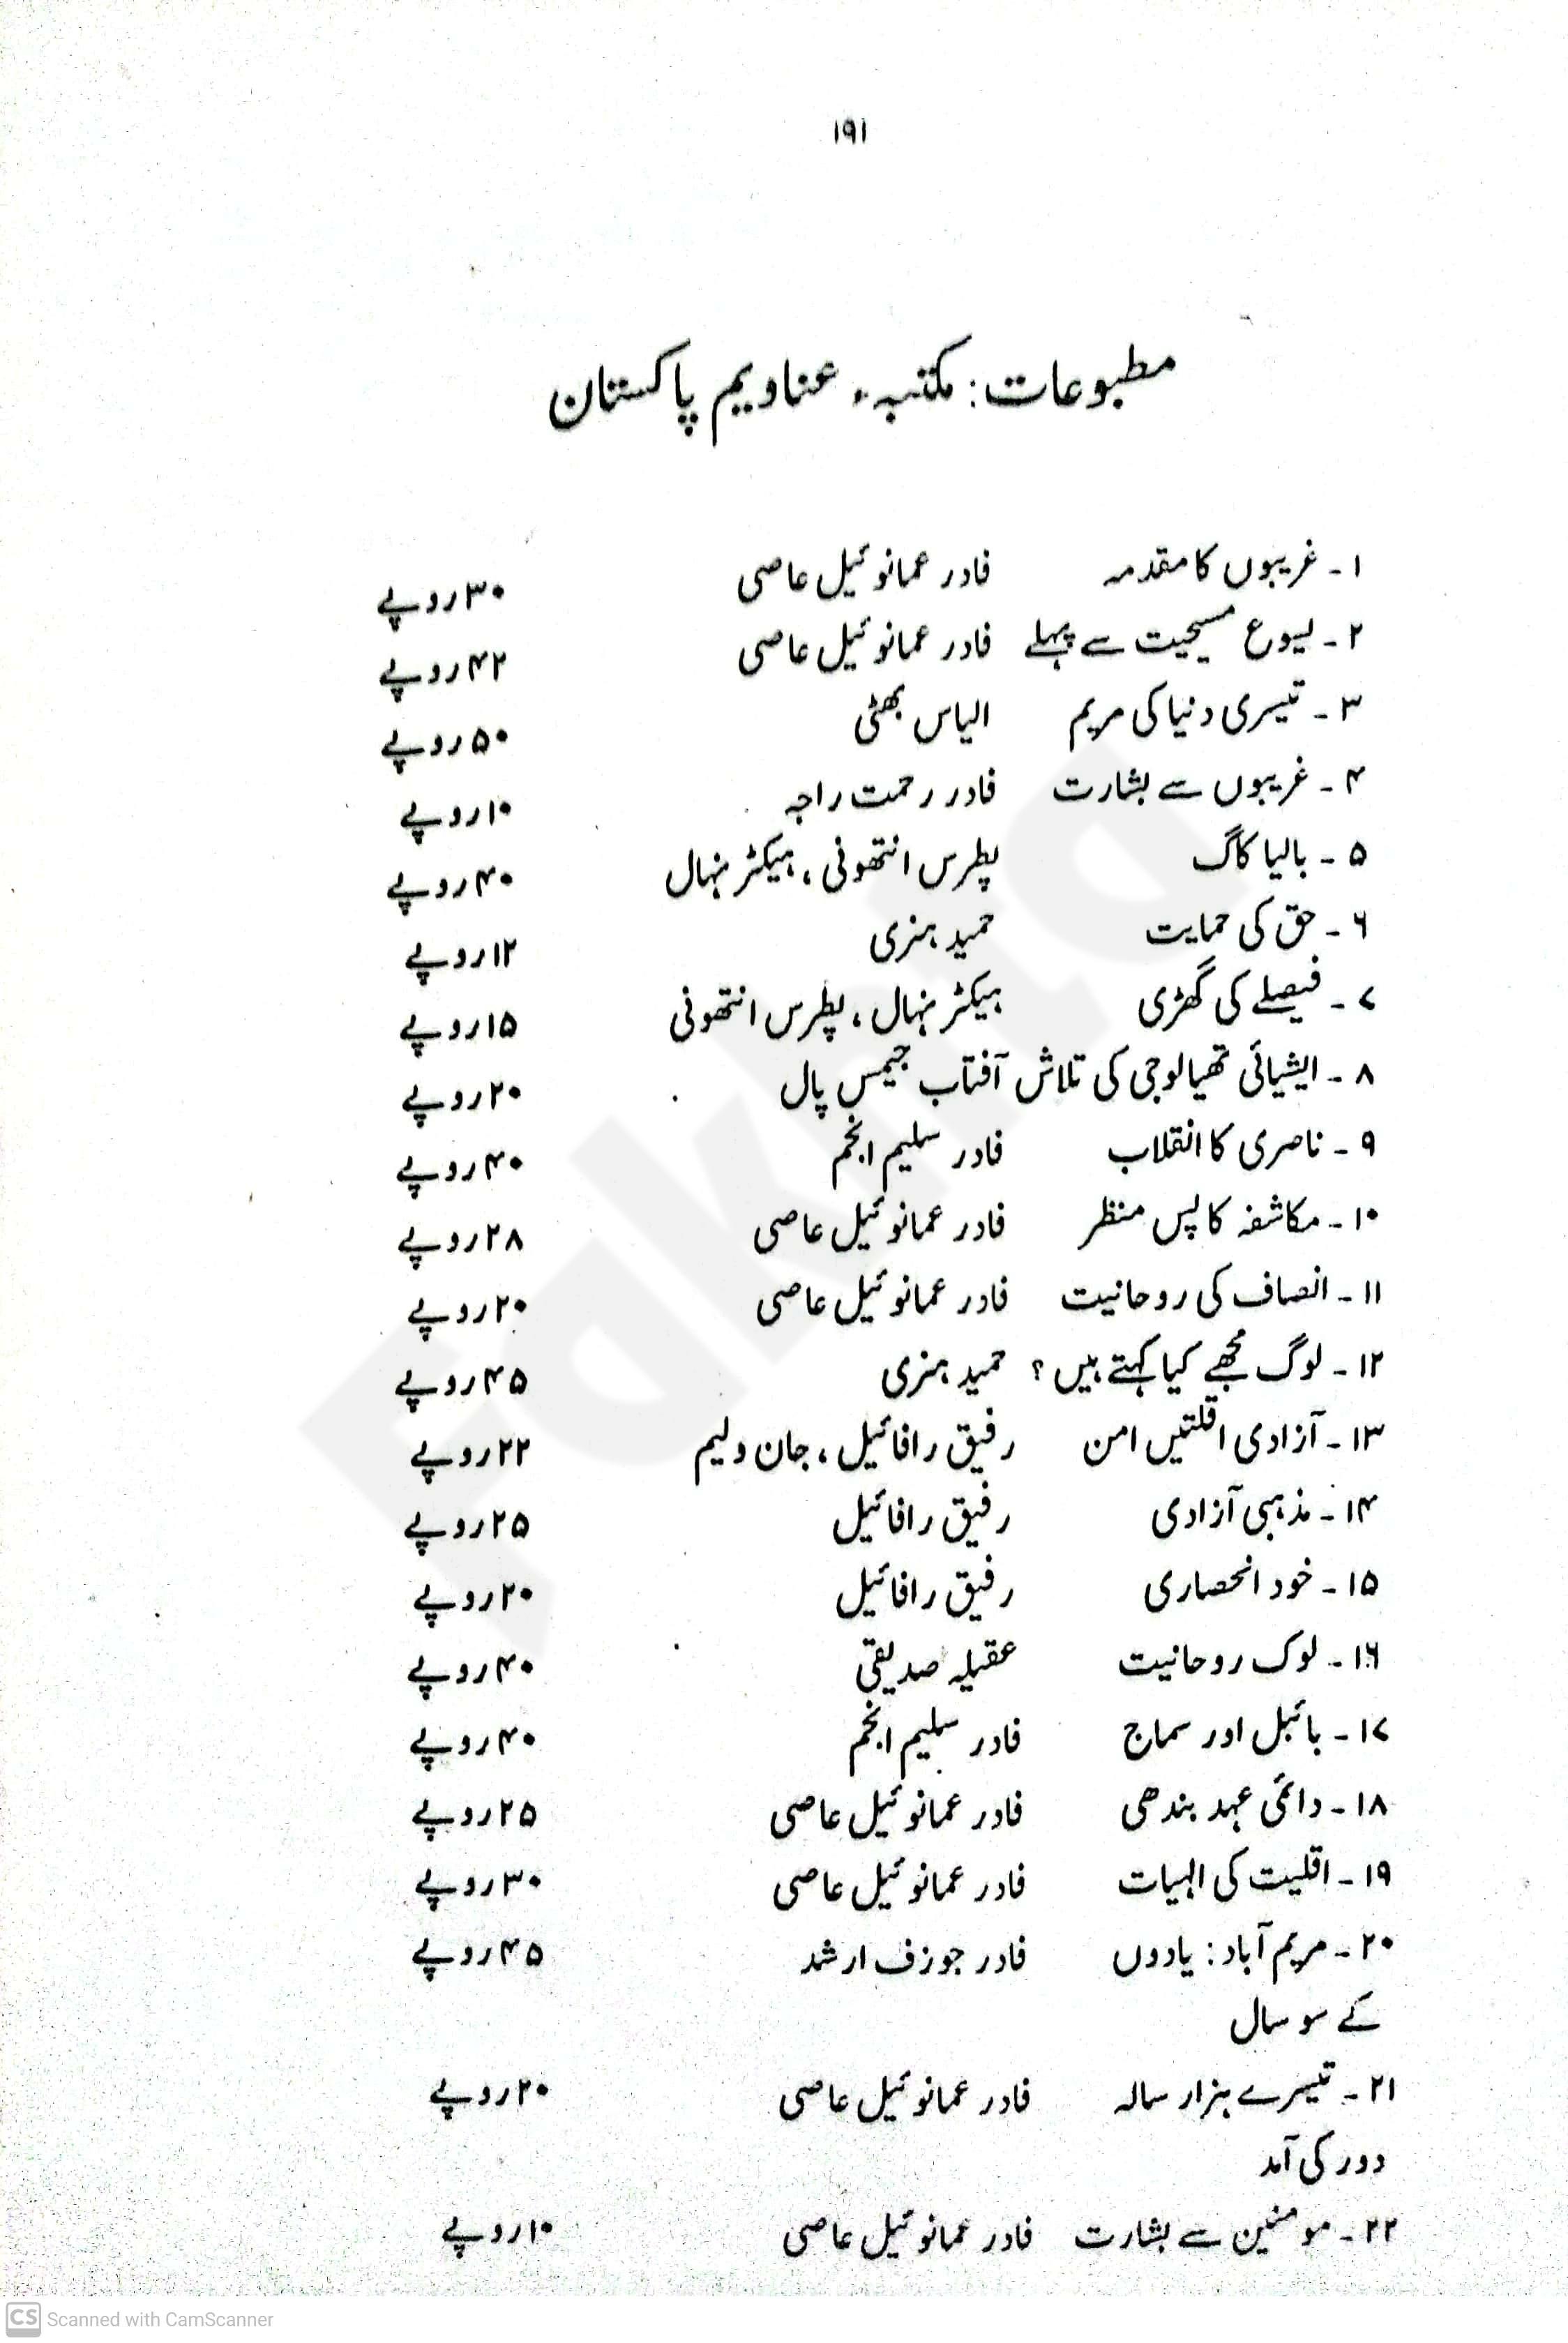 ۱۹۱
مطبوعات: مکتبہء عناویم پاکستان
۱ - غریبوں کا مقدمہ فادر عمانوئیل عاصی ۳۰ روپے
۲ - یسوع مسیحیت سے پہلے فادر عمانوئیل عاصی ۴۲ روپے
۳ - تیسری دنیا کی مریم الیاس بھٹی ۵۰ روپے
۴ - غریبوں سے بشارت فادر رحمت راجہ ۱۰ روپے
۵ - بالیا کاگ پطرس انتھونی، ہیکٹر نہال ۴۰ روپے
۶ - حق کی حمایت حمید ہنری ۱۲ روپے
۷ - فیصلے کی گھڑی ہیکٹر نہال، پطرس انتھونی ۱۵ روپے
۸ - ایشیائی تھیالوجی کی تلاش آفتاب جیمس پال ۲۰ روپے
۹ - ناصری کا انقلاب فادر سلیم انجم ۴۰ روپے
۱۰ - مکاشفہ کا پس منظر فادر عمانوئیل عاصی ۲۸ روپے
۱۱ - انصاف کی روحانیت فادر عمانوئیل عاصی ۲۰ روپے
۱۲ - لوگ مجھے کیا کہتے ہیں؟ حمید ہنری ۴۵ روپے
۱۳ - آزادی اقلتیں امن رفیق رافائیل، جان ولیم ۲۲ روپے
۱۴ - مذہبی آزادی رفیق رافائیل ۲۵ روپے
۱۵ - خود انحصاری رفیق رافائیل ۲۰ روپے
۱۶ - لوک روحانیت عقیلہ صدیقی ۴۰ روپے
۱۷ - بائبل اور سماج فادر سلیم انجم ۴۰ روپے
۱۸ - دائمی عہد بندھی فادر عمانوئیل عاصی ۲۵ روپے
۱۹ - اقلیت کی الہیات فادر عمانوئیل عاصی ۳۰ روپے
۲۰ - مریم آباد: یادوں فادر جوزف ارشد ۴۵ روپے
کے سو سال
۲۱ - تیسرے ہزار سالہ فادر عمانوئیل عاصی ۲۰ روپے
دور کی آمد
۲۲ - مومنین سے بشارت فادر عمانوئیل عاصی ۱۰ روپے
CS Scanned with CamScanner